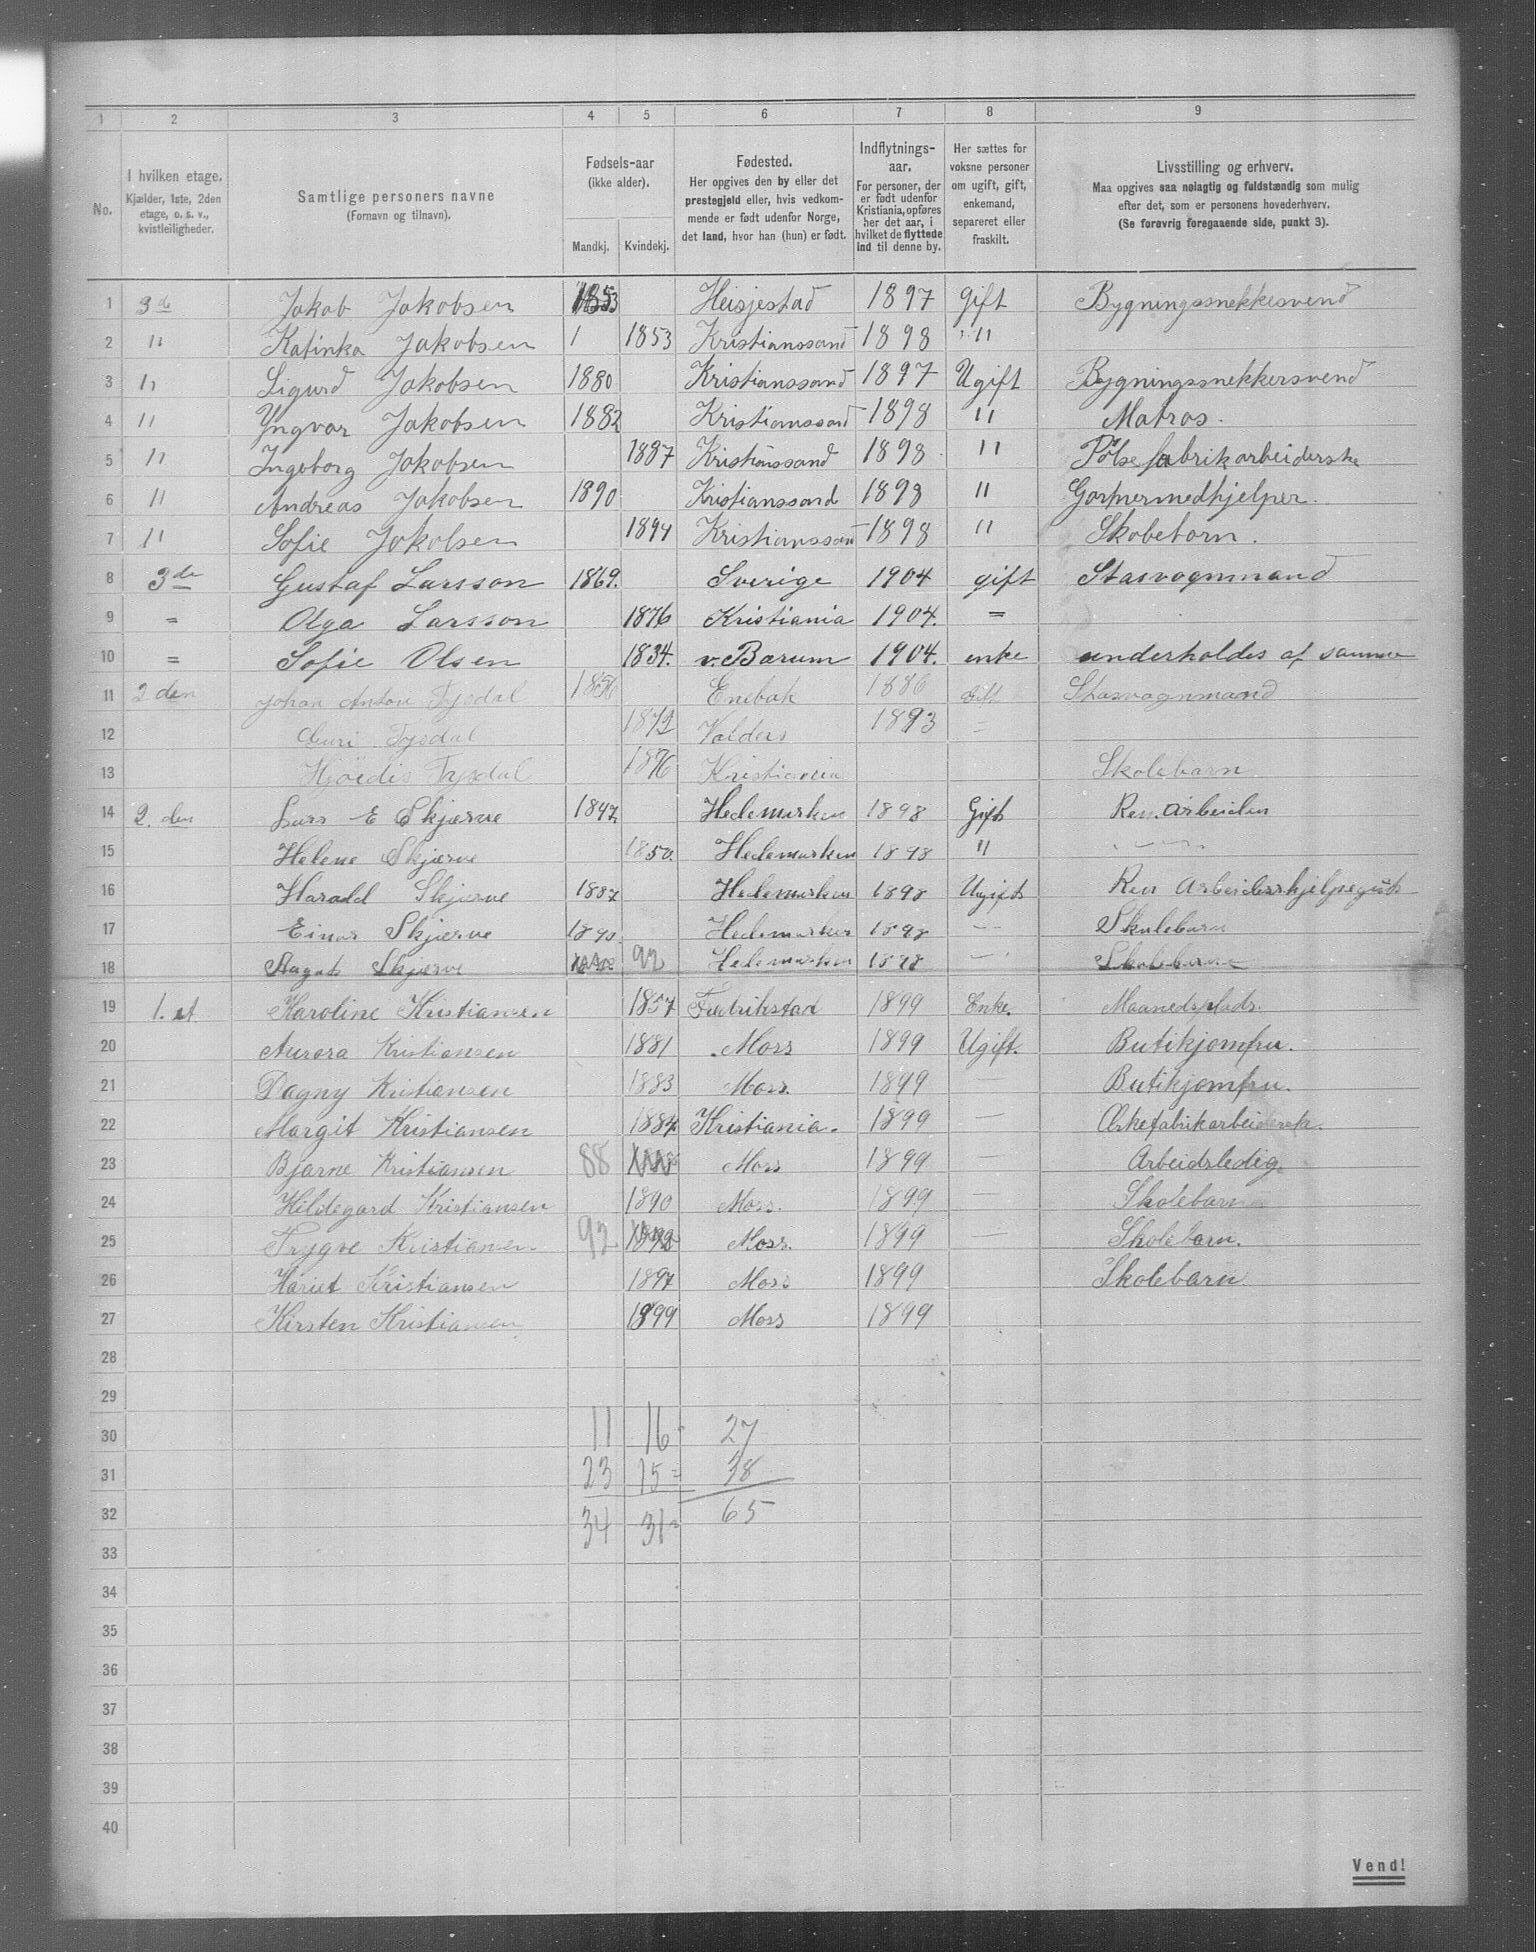 1 2 3 4 5 6 7 8 9
No.
I hvilken etage.
Kjælder, 1ste, 2den
etage, o. s. v.,
kvistleiligheder.
Samtlige personers navne
(Fornavn og tilnavn).
Fødsels-aar
(ikke alder).
Mandkj. Kvindekj.
Fødested.
Her opgives den by eller det
prestegjeld eller, hvis vedkom-
mende er født udenfor Norge,
det land, hvor han (hun) er født.
Indflytnings-
aar.
For personer, der
er født udenfor
Kristiania, opføres
her det aar, i
hvilket de flyttede
ind til denne by.
Her sættes for
voksne personer
om ugift, gift,
enkemand,
separeret eller
fraskilt.
Livsstilling og erhverv.
Maa opgives saa nøiagtig og fuldstændig som mulig
efter det, som er personens hovederhverv.
(Se forøvrig foregaaende side, punkt 3).
1 3de Jakob Jakobsen 1853 Heisjestad 1897 gift Bygningssnekkesvend
2 " Katinka Jakobsen 1 1853 Kristianssand 1898 "
3 " Sigurd Jakobsen 1880 Kristianssand 1897 Ugift Bygningssnekkersvend
4 " Yngvar Jakobsen 1882 Kristianssand 1898 " Matros.
5 " Ingeborg Jakobsen 1887 Kristianssand 1898 " Pølsefabrikarbeiderske
6 " Andreas Jakobsen 1890 Kristianssand 1898 " Gartnermedhjelper.
7 " Sofie Jakobsen 1894 Kristianssan 1898 " Skobetorn.
8 3de Gustaf Larsson 1869. Sverige 1904 gift Stasvognmand
9 = Olga Larsson 1876 Kristiania 1904. =
10 = Sofie Olsen 1834. v. Bærum 1904. enke underholdes af samme
11 2den Johan Anton Tysdal 1856 Enebak 1886 Gift Stasvognmand
12 Guri Tysdal 1872 Valders 1893 =
13 Hjördis Tysdal 1896 Kristiania Skolebarn
14 2. den Lars E Skjærve 1847 Hedemarken 1898 Gift Ren.Arbeider
15 Helene Skjærve 1850. Hedemarken 1898 " - " -
16 Harald Skjerve 1887 Hedemarken 1898 Ugift Ren Arbeiderskjelpegut
17 Einar Skjærve 1890 Hedemarken 1898 - Skolebarn
18 Aagot Skjærve 92 Hedemarken 1898 - Skolebarn
19 1. et Karoline Kristiansen 1857 Fredrikstad 1899 Enke. Maanedsplads.
20 Aurora Kristiansen 1881 Moss 1899 Ugift. Butikjomfru.
21 Dagny Kristiansen 1883 Moss. 1899 — Butikjomfru.
22 Margit Kristiansen 1884 Kristiania. 1899 — Æskefabrikarbeidersk.
23 Bjarne Kristiansen 88 Moss 1899 — Arbeidsledig
24 Hildegard Kristiansen 1890 Moss. 1899 — Skolebarn
25 Trygve Kristiansen 92 1892 Moss. 1899 — Skolebarn.
26 Hariet Kristiansen 1897 Moss 1899 Skolebarn
27 Kirsten Kristiansen 1899 Moss 1899
28
29
30 11 16 - 27
31 23 15 = 38
32 34 31 = 65
33
34
35
36
37
38
39
40
Vend!